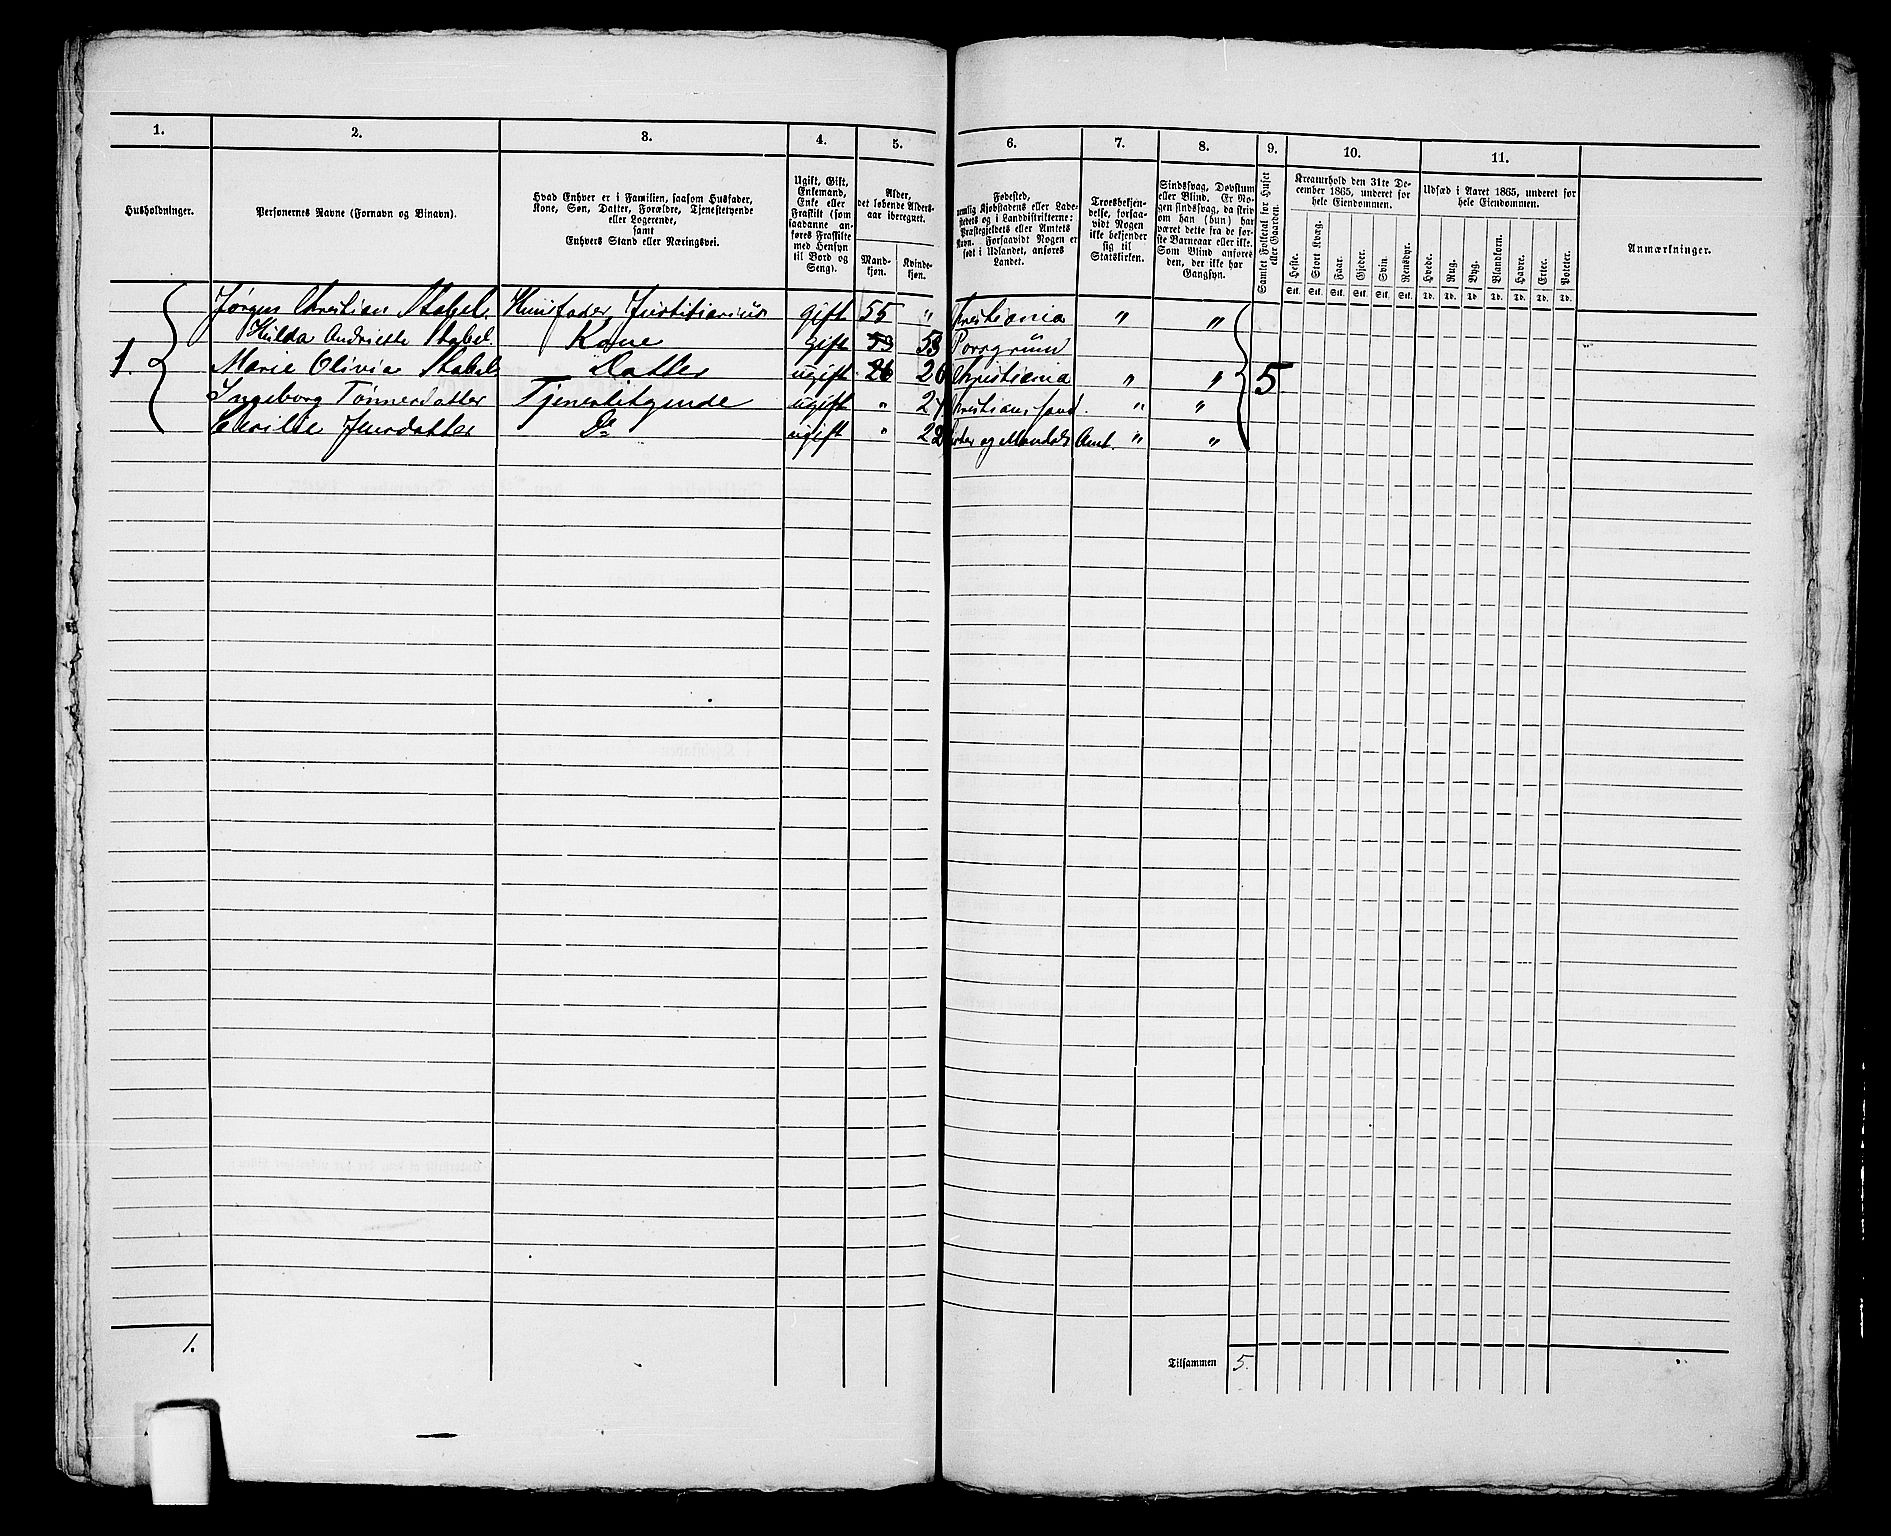 1. 2. 3. 4. 5. 6. 7. 8. 9. 10. 11.
Husholdninger.
Personernes Navne (Fornavn og Binavn).
Hvad Enhver er i Familien, saasom Husfader,
Kone, Søn, Datter, Forældre, Tjenestetyende
eller Logerende,
samt
Enhvers Stand eller Næringsvei.
Ugift, Gift,
Enkemand,
Enke eller
Fraskilt (som
saadanne an-
føres Fraskilte
med Hensyn
til Bord og
Seng).
Alder,
det løbende Alders-
aar iberegnet.
Mand-
kjøn.
Kvinde-
kjøn.
Fødested,
nemlig Kjøbstadens eller Lade-
stedets og i Landdistrikterne:
Præstegjeldets eller Amtets
Navn. Forsaavidt Nogen er
født i Udlandet, anføres
Landet.
Troesbekjen-
delse, forsaa-
vidt Nogen
ikke bekjender
sig til
Statskirken.
Sindssvag, Døvstum
eller Blind. Er No-
gen sindssvag, da skriv
om han (hun) har
været dette fra de før-
ste Barneaar eller ikke.
Som Blind anføres
den, der ikke har
Gangsyn.
Samlet Folketal for Huset
eller Gaarden.
Kreaturhold den 31te De-
cember 1865, underet for
hele Eiendommen.
Heste. Stort Kvæg. Faar. Gjeder. Svin. Rensdyr.
Stk. Stk. Stk. Stk. Stk. Stk.
Udsæd i Aaret 1865, underet for
hele Eiendommen.
Hvede. Rug. Byg. Blandkorn. Havre. Erter. Poteter.
Td. Td. Td. Td. Td. Td. Td.
Anmærkninger.
Jørgen Christian Stabel Huusfader Justitiarius gift 55 " Christiania " "
Hulda Andriette Stabel. Kone Gift 53 53 Porsgrund
1. Marie Olivia Stabel Datter ugift 26 26 Christiania " " 5
Ingeborg Tønnerdatter Tjenestetyende ugift " 27 Christiansand. " "
Iversdatter Do ugift " 22 og Mandals Amt. " "
1. Tilsammen 5.